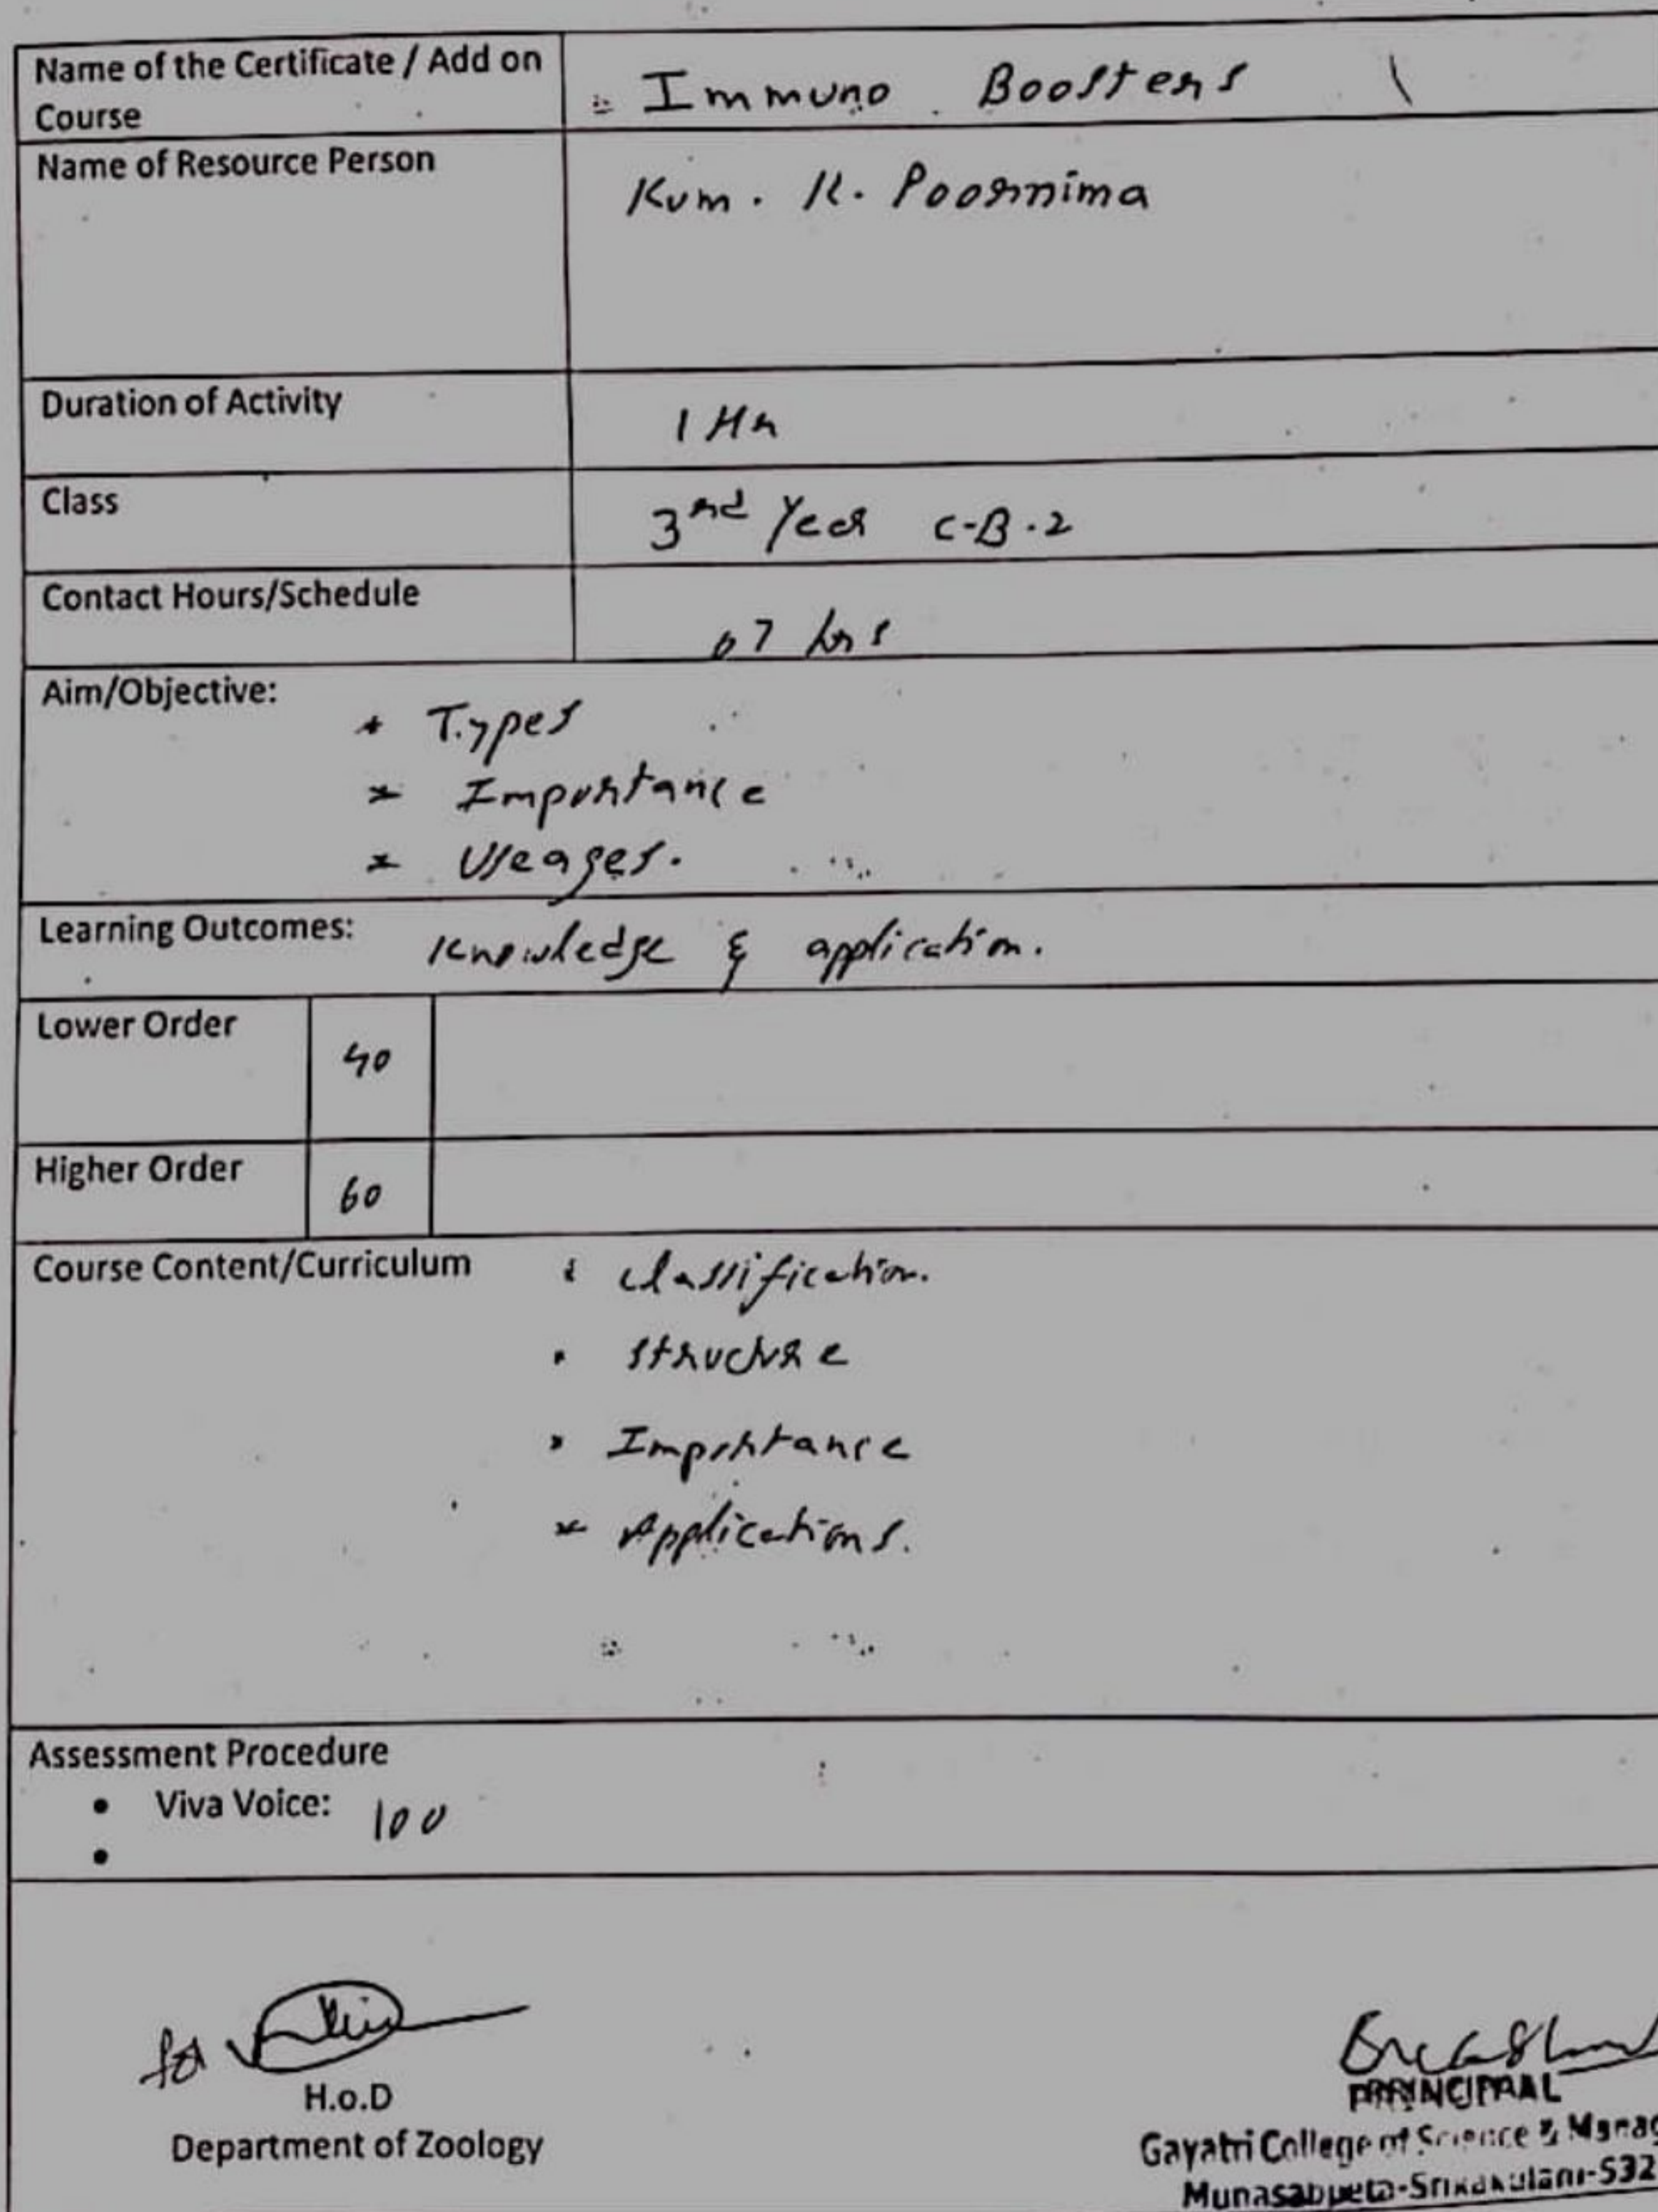 Name of the Certificate / Add on
Course
Immuno Boosters
Name of Resource Person
Kum. K. Poornima
Duration of Activity
1 Hr
Class
3nd Year C-B.Z
Contact Hours/Schedule
07 hrs
Aim/Objective:
* Types
* Importance
* Useages.
Learning Outcomes: Knowledge & application.
Lower Order 40
Higher Order 60
Course Content/Curriculum
* classification.
* structure
* Importance
* Applications.
Assessment Procedure
• Viva Voice: 100
•
for
H.o.D
Department of Zoology
PRINCIPAL
Gayatri College of Science & Manag
Munasabpeta-Srikakulam-532